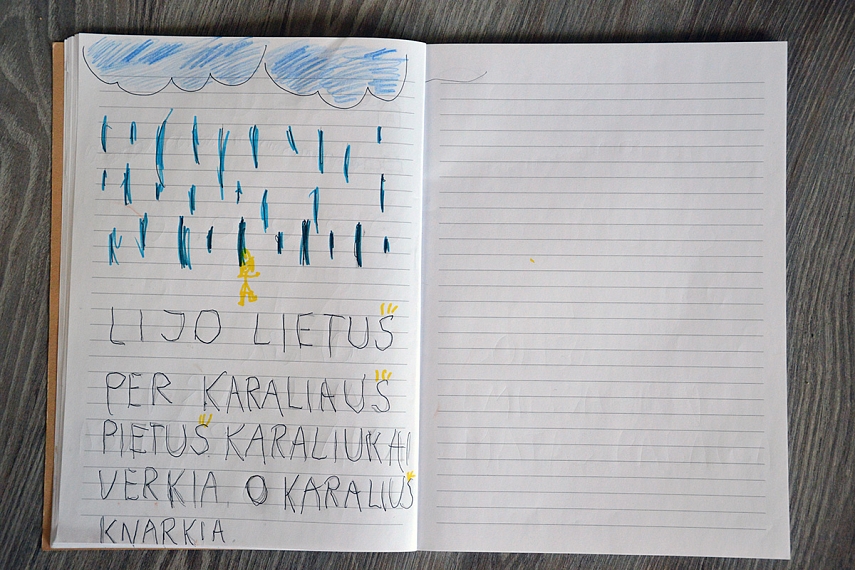 LIJO LIETUŠ
PER KARALIAUŠ
PIETUŠ KARALIUKAI
VERKIA O KARALIUŠ
KNARKIA